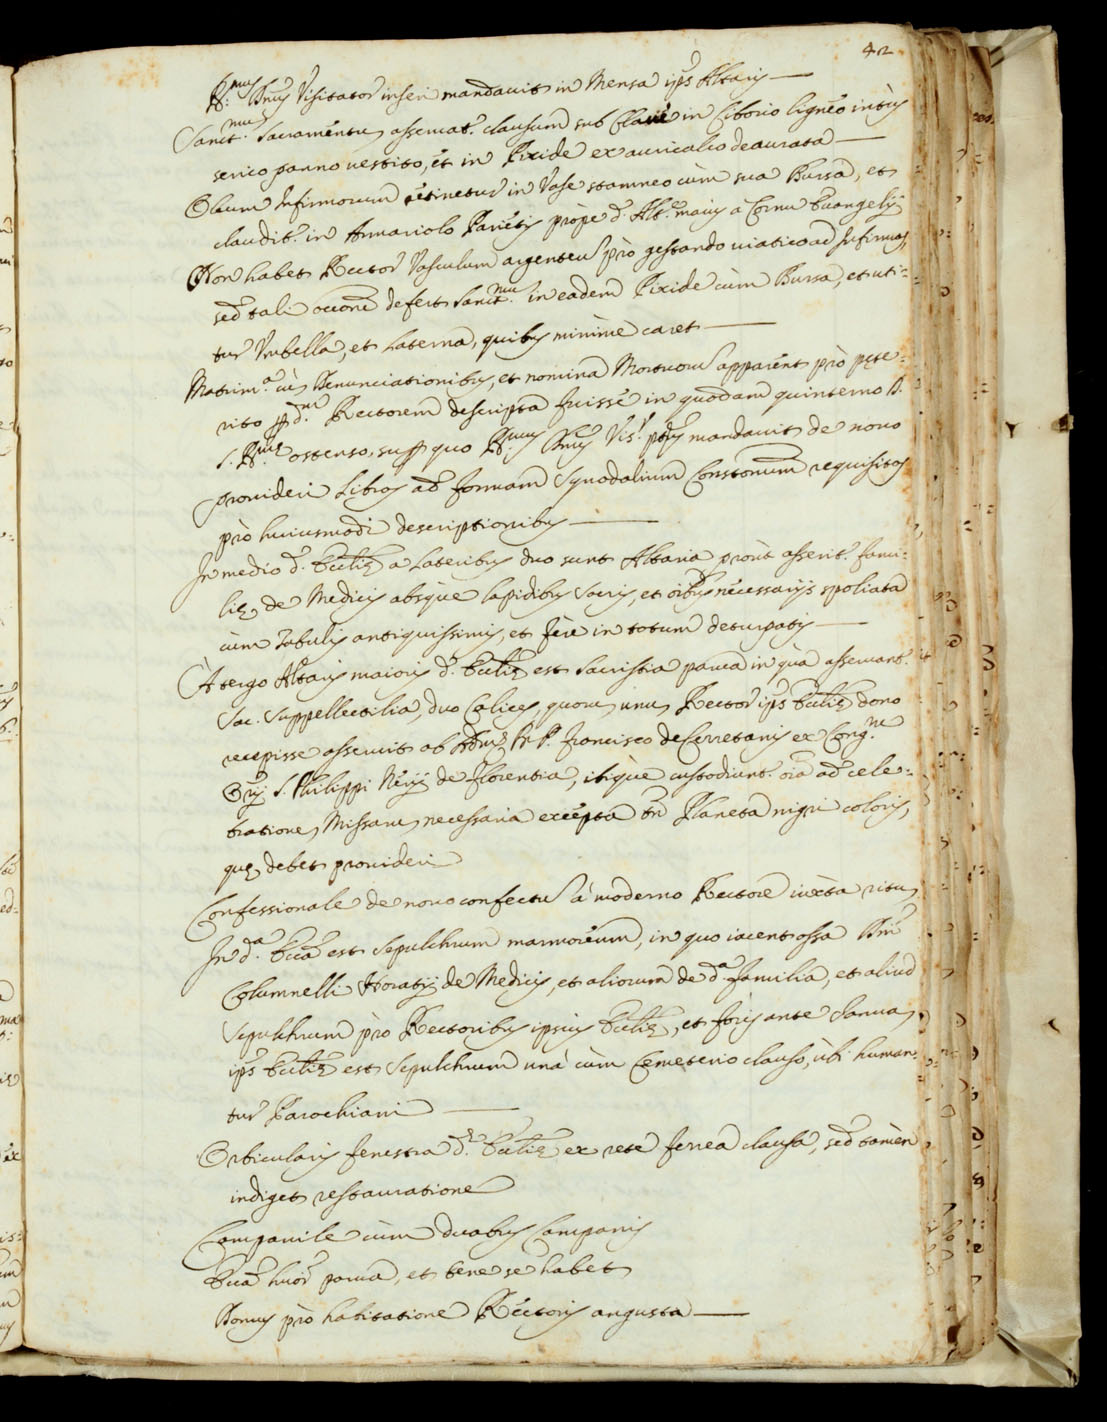 42
R.mus Dnus Visitator inseri mandavit in Mensa ips Altaris
Sanct.mum Sacramentum asservat.r clausum sub clave in Ciborio ligneo intus
serico panno vestito, et in Pixide ex auricalco deaurata
Oleum Infirmorum retinetur in Vase stamneo cum sua Bursa, et
claudit.r in Armariolo Parietis prope d. Alt.e maius a Cornu Evangelij
Non habet Rector Vasculum argenteu pro gestando viatico ad Infirmos,
sed tali occone defert Sanct.mum in eadem Pixide cum Bursa, et uti=
tur Umbella, et Laterna, quibus minime caret
Matrim.a cu Denunciationibus, et nomina Mortuoru apparent pro prete=
rito p d.num Rectorem descripta fuisse in quodam quinterno D.
S. R.me ostenso, sup quo R.mus Dnus Vis.r ptus mandavit de novo
provideri Libros ad formam Synodalium Constonum requisitos
pro huiusmodi descriptionibus
In medio d. Eccliæ a Lateribus duo sunt Altaria prout asserit.r fami=
liæ de Medicis absque lapidibus sacris, et oibus necessarijs spoliata
cum Tabulis antiquissimis, et fere in totum deturpatis
A tergo Altaris maioris d. Eccliæ est Sacristia parva in qua asservant.r
Sac. Suppellectilia, duo Calices, quoru unu Rector ips Eccliæ dono
recepisse asseruit ab Adm. Rr P. Francisco de Cerretanis ex Cong.ne
Orij S. Philippi Nerij de Florentia, ibique custodiunt.r oia ad cele=
brationem Missaru necessaria excepta tn Planeta nigri coloris,
quæ debet provideri
Confessionale de novo confectu a moderno Rectore iuxta ritum
In d.a Eccla est Sepulchrum marmoreum, in quo iacent ossa Dni
Columnelli Horatij de Medicis, et aliorum de d.a familia, et aliud
Sepulchrum pro Rectoribus ipsius Eccliæ, et foris ante Ianuam
ips Eccliæ est Sepulchrum una cum Cemeterio clauso, ubi human=
tur Parochiani
Orbicularis fenestra d. Eccliæ ex rete ferrea clausa, sed tamen
indiget restauratione
Campanile cum duabus Campanis
Eccla huor parva, et bene se habet
Domus pro habitatione Rectoris angusta